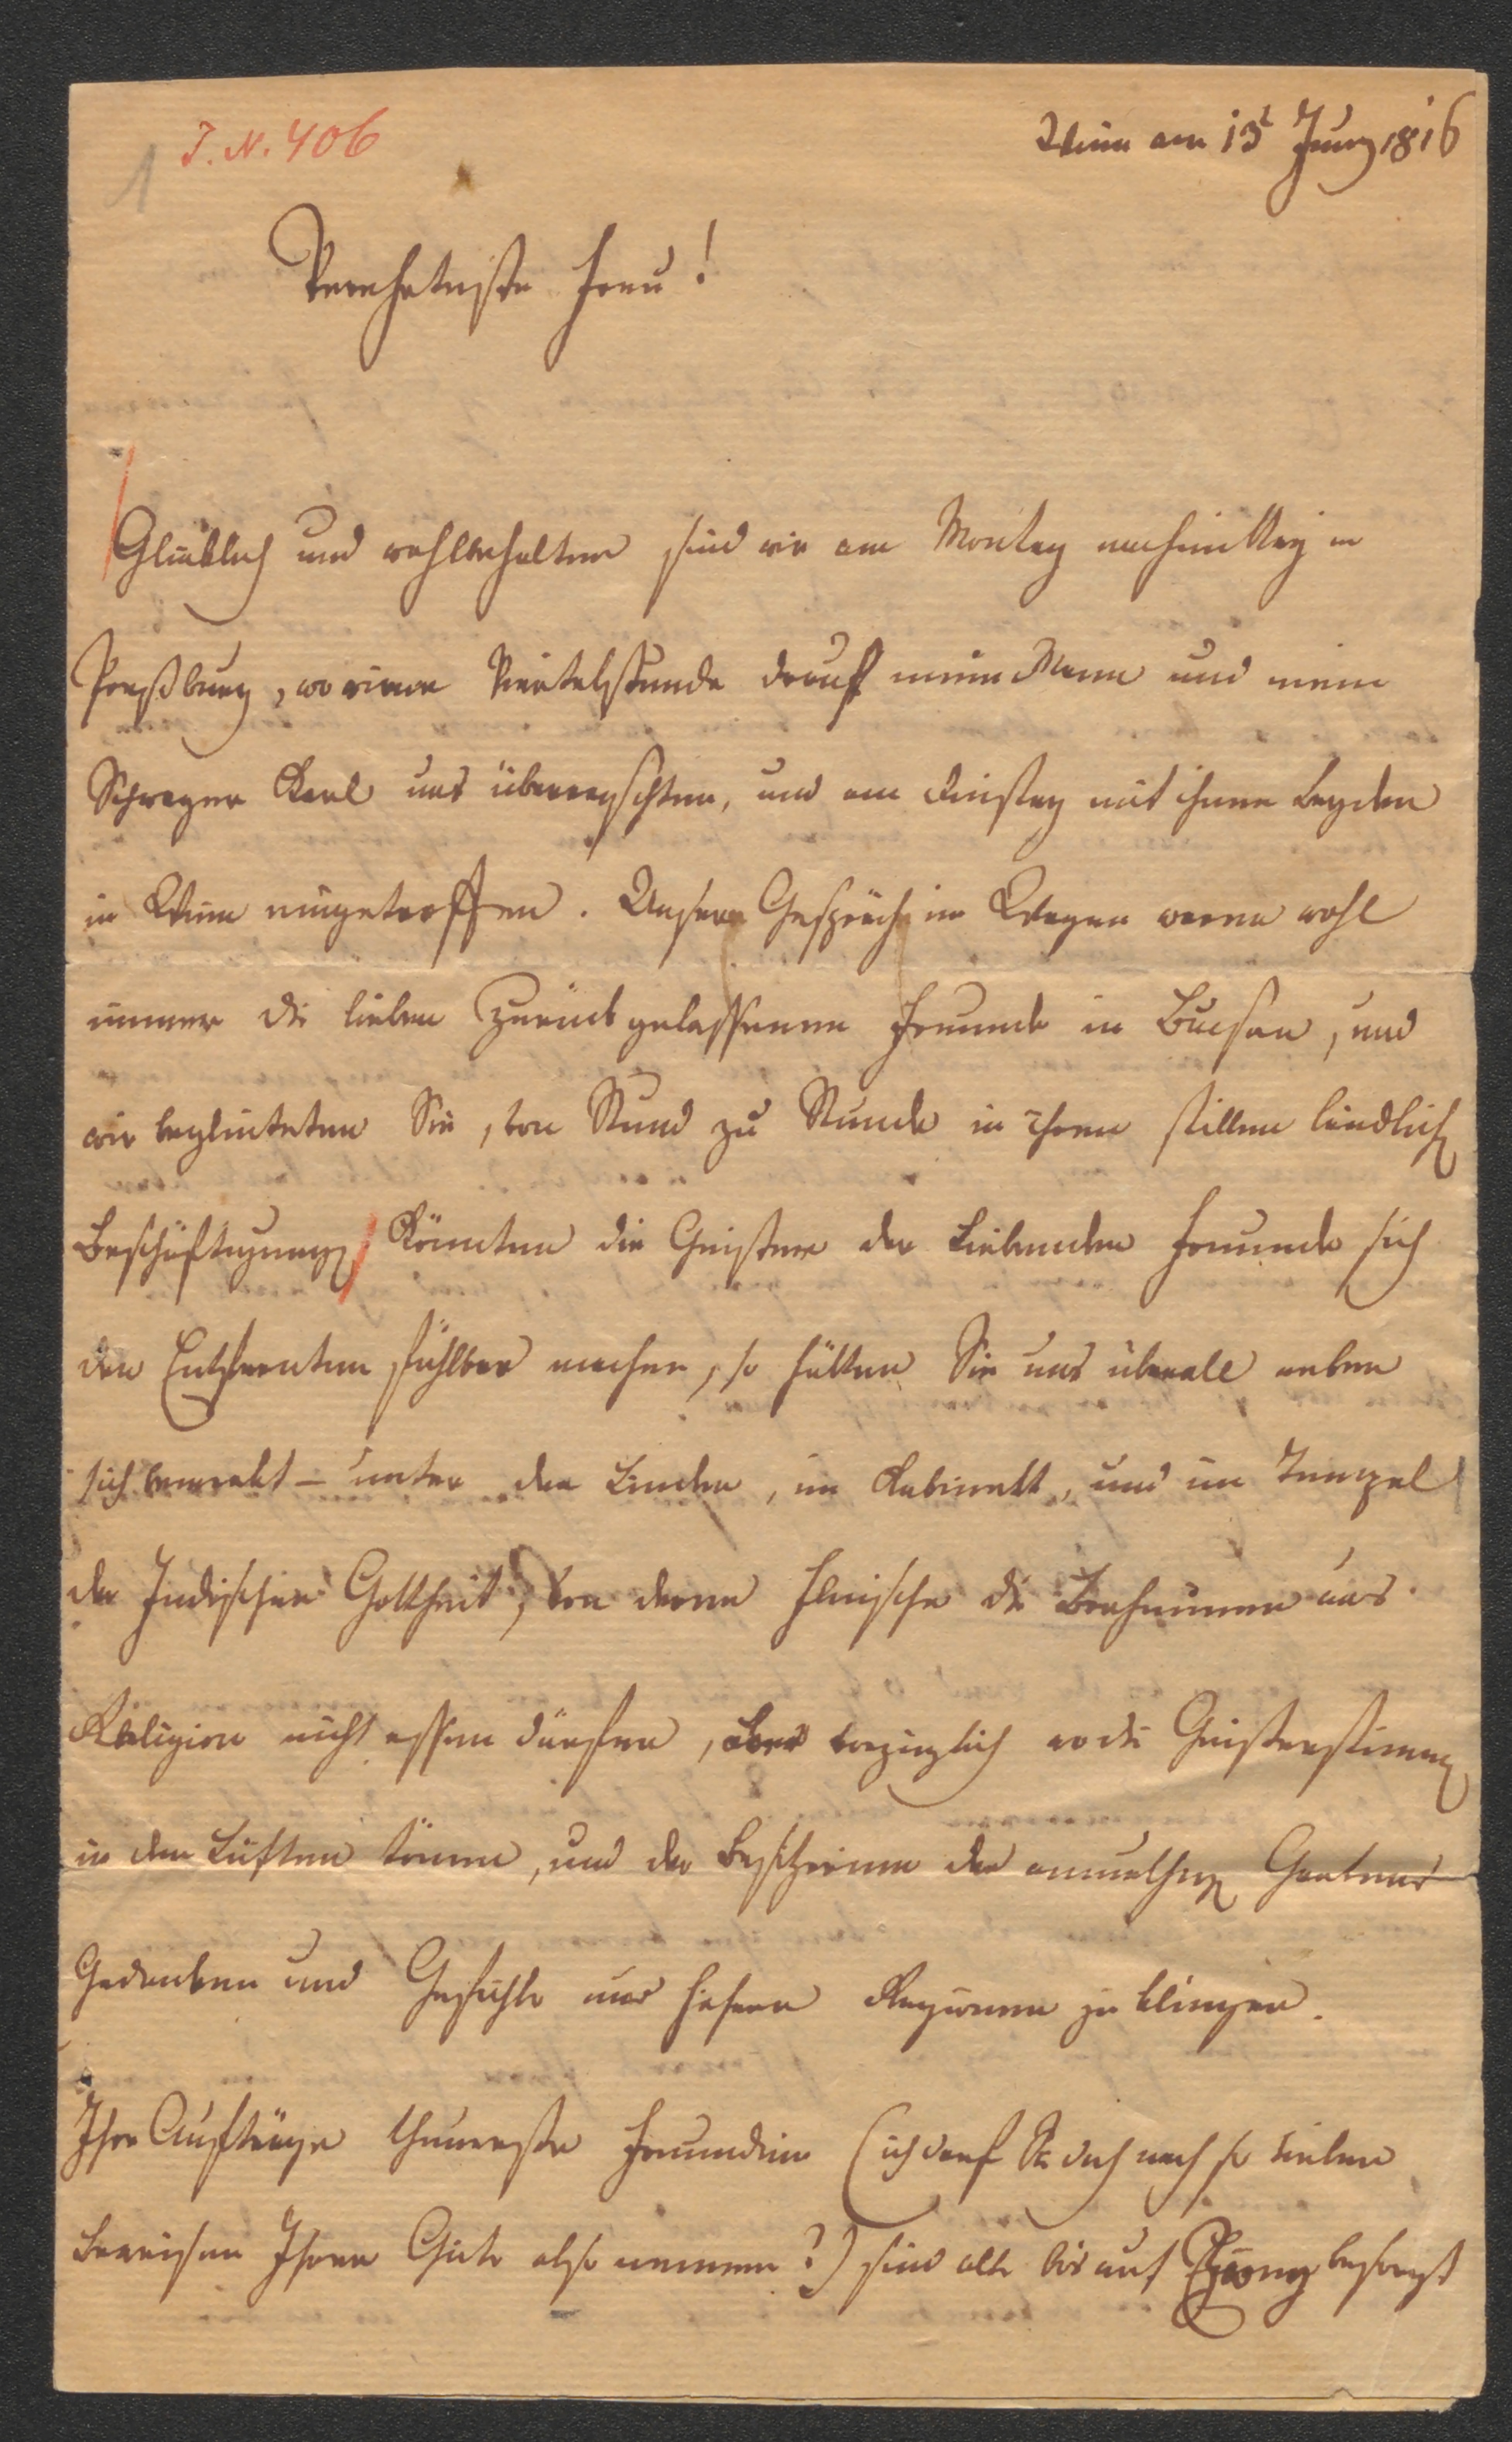 1 J. N. 406
Wien am 13t Juny 1816
Verehrteste Frau!
Glücklich und wohlbehalten sind wir am Montag nachmittag in
Preßburg, wo einer Viertelstunde drauf mein Mann und mein
Schwager Karl uns überraschten, und am Dinstag mit ihnen beyden
in Wien eingetroffen. Unsere Gespräche im Wagen waren wohl
immer die lieben Zurückgelassenen Freunde in Bucsan, und
wir begleiteten Sie, von Stund zu Stunde in ihren stillen ländlich
Beschäftigung Könnten die Geister der Liebenden Freunde sich
den Entfernten fühlbar machen, so hätten Sie uns überall neben
sich bemerkt – unter den Linden, im Kabinett, und im Tempel
der Indischen Gottheit, von deren Fleische die Braminen aus
Religion nicht essen dürfen, aber vorzüglich wo die Geisterstimm
in den Lüften tönen, und der Besitzerinn des anmuthig Gartens
Gedanken und Gefühle aus höhern Regionen zu klingen.
Ihre Aufträge theuerste Freundinn (ich darf Sie doch nach so vielen
Beweisen Ihrer Güte also nennen?) sind alle bis auf besorgt